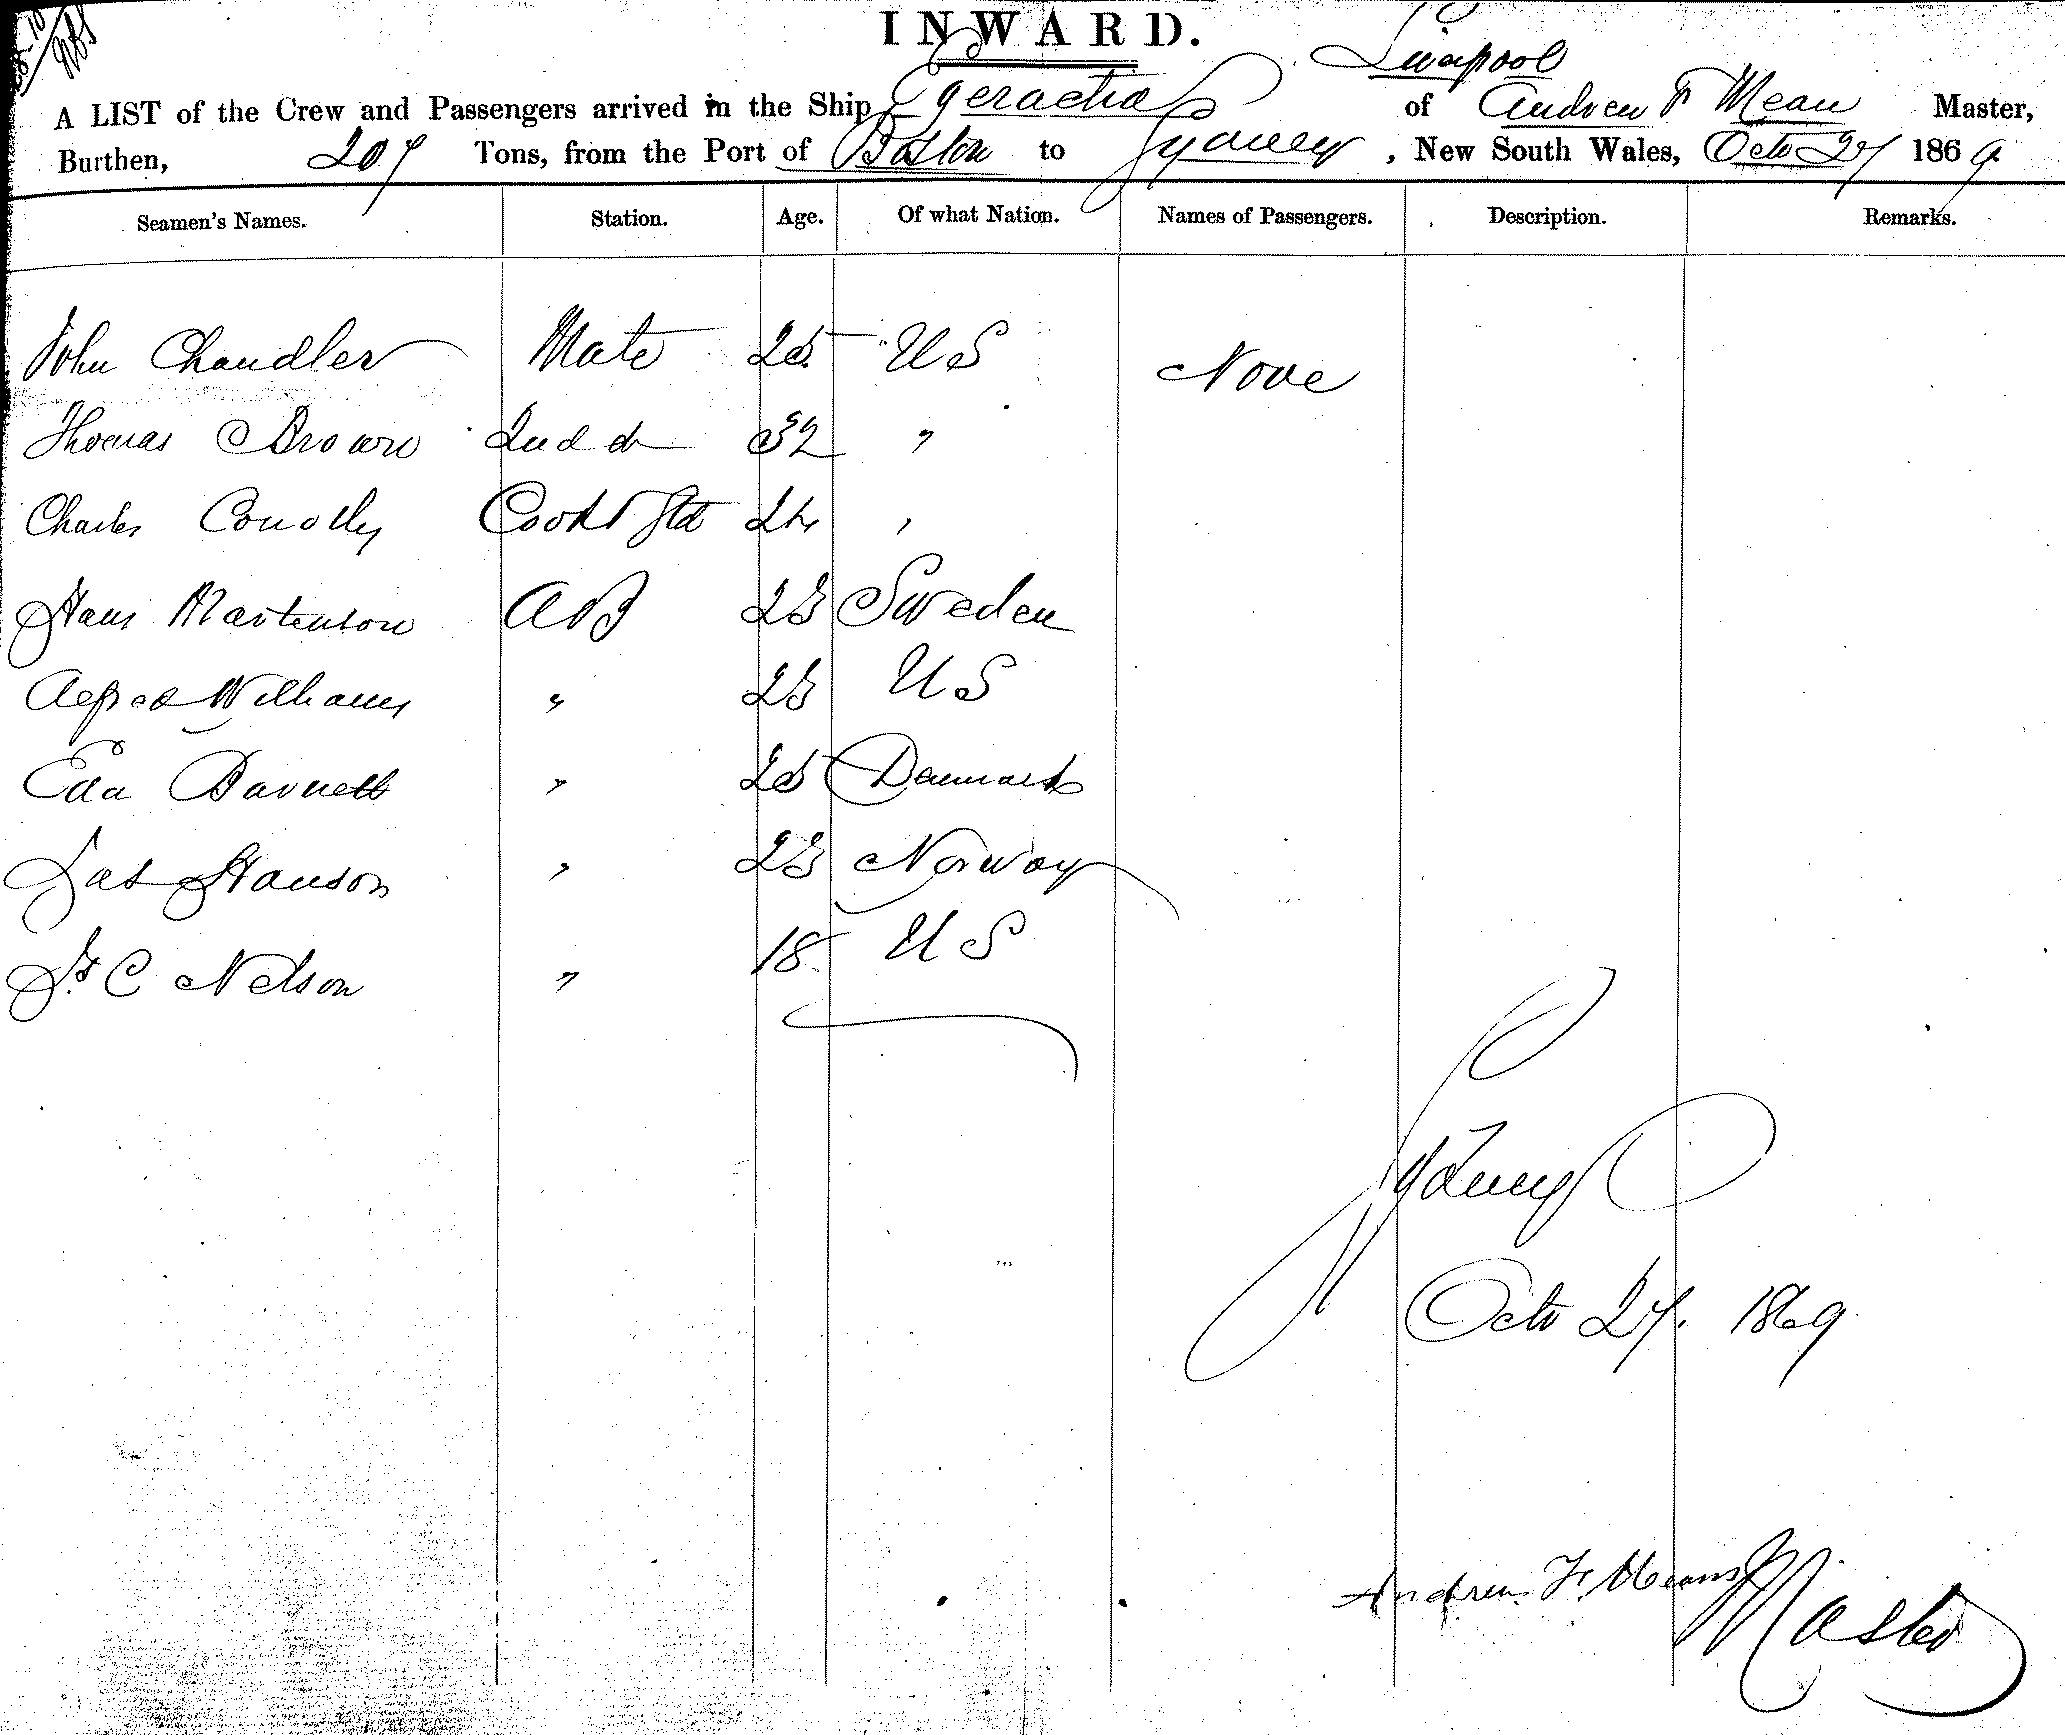 INWARD.
Liverpool
A LIST of the Crew and Passengers arrived in the Ship Egeractia of Andrew F Mean Master,
Burthen, 207 Tons, from the Port of Boston to Sydney, New South Wales, Octo 27 1869
Seamen's Names. Station. Age. Of what Nation. Names of Passengers. Description. Remarks.
John Chandler Mate 25 US None
Thomas Brown 2nd do 32 "
Charles Conolly Cook & Std 24 "
Hans Martenson AB 23 Sweden
Alfred Williams " 23 US
Edw Barnett " 25 Denmark
Jas Hanson " 23 Norway
C Nelson " 18 US
Sydney
Octo 27. 1869
Andrew F. Means Master